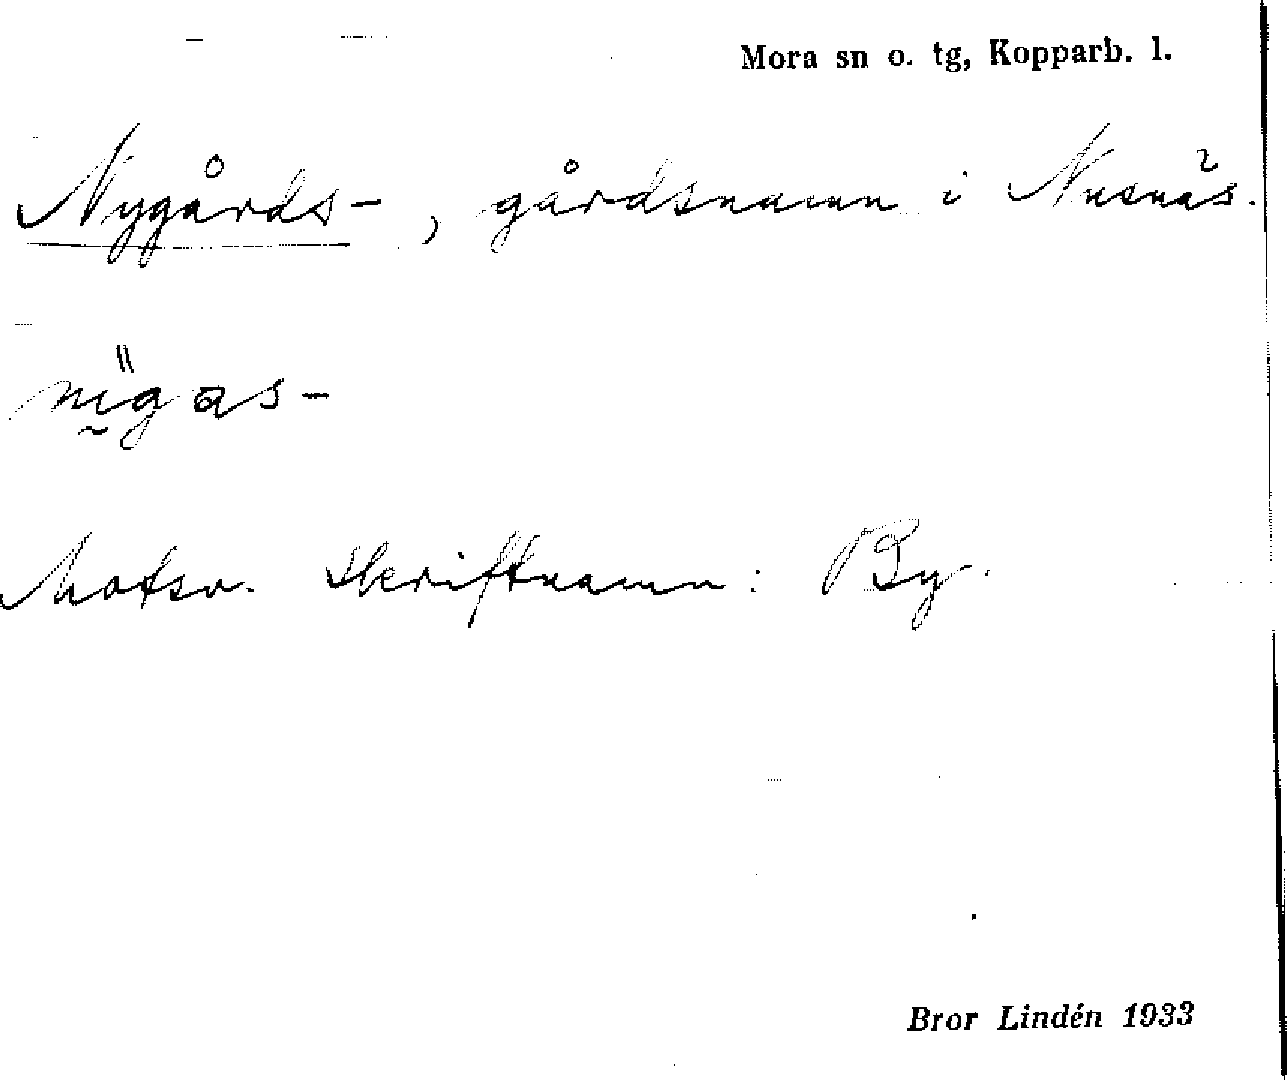 Mora sn o. tg, Kopparb. l.
Nygårds-, gårdsnamn i Nusnäs.
nı̋gas-
Motsv. skriftnamn: By.
Bror Lindén 1933